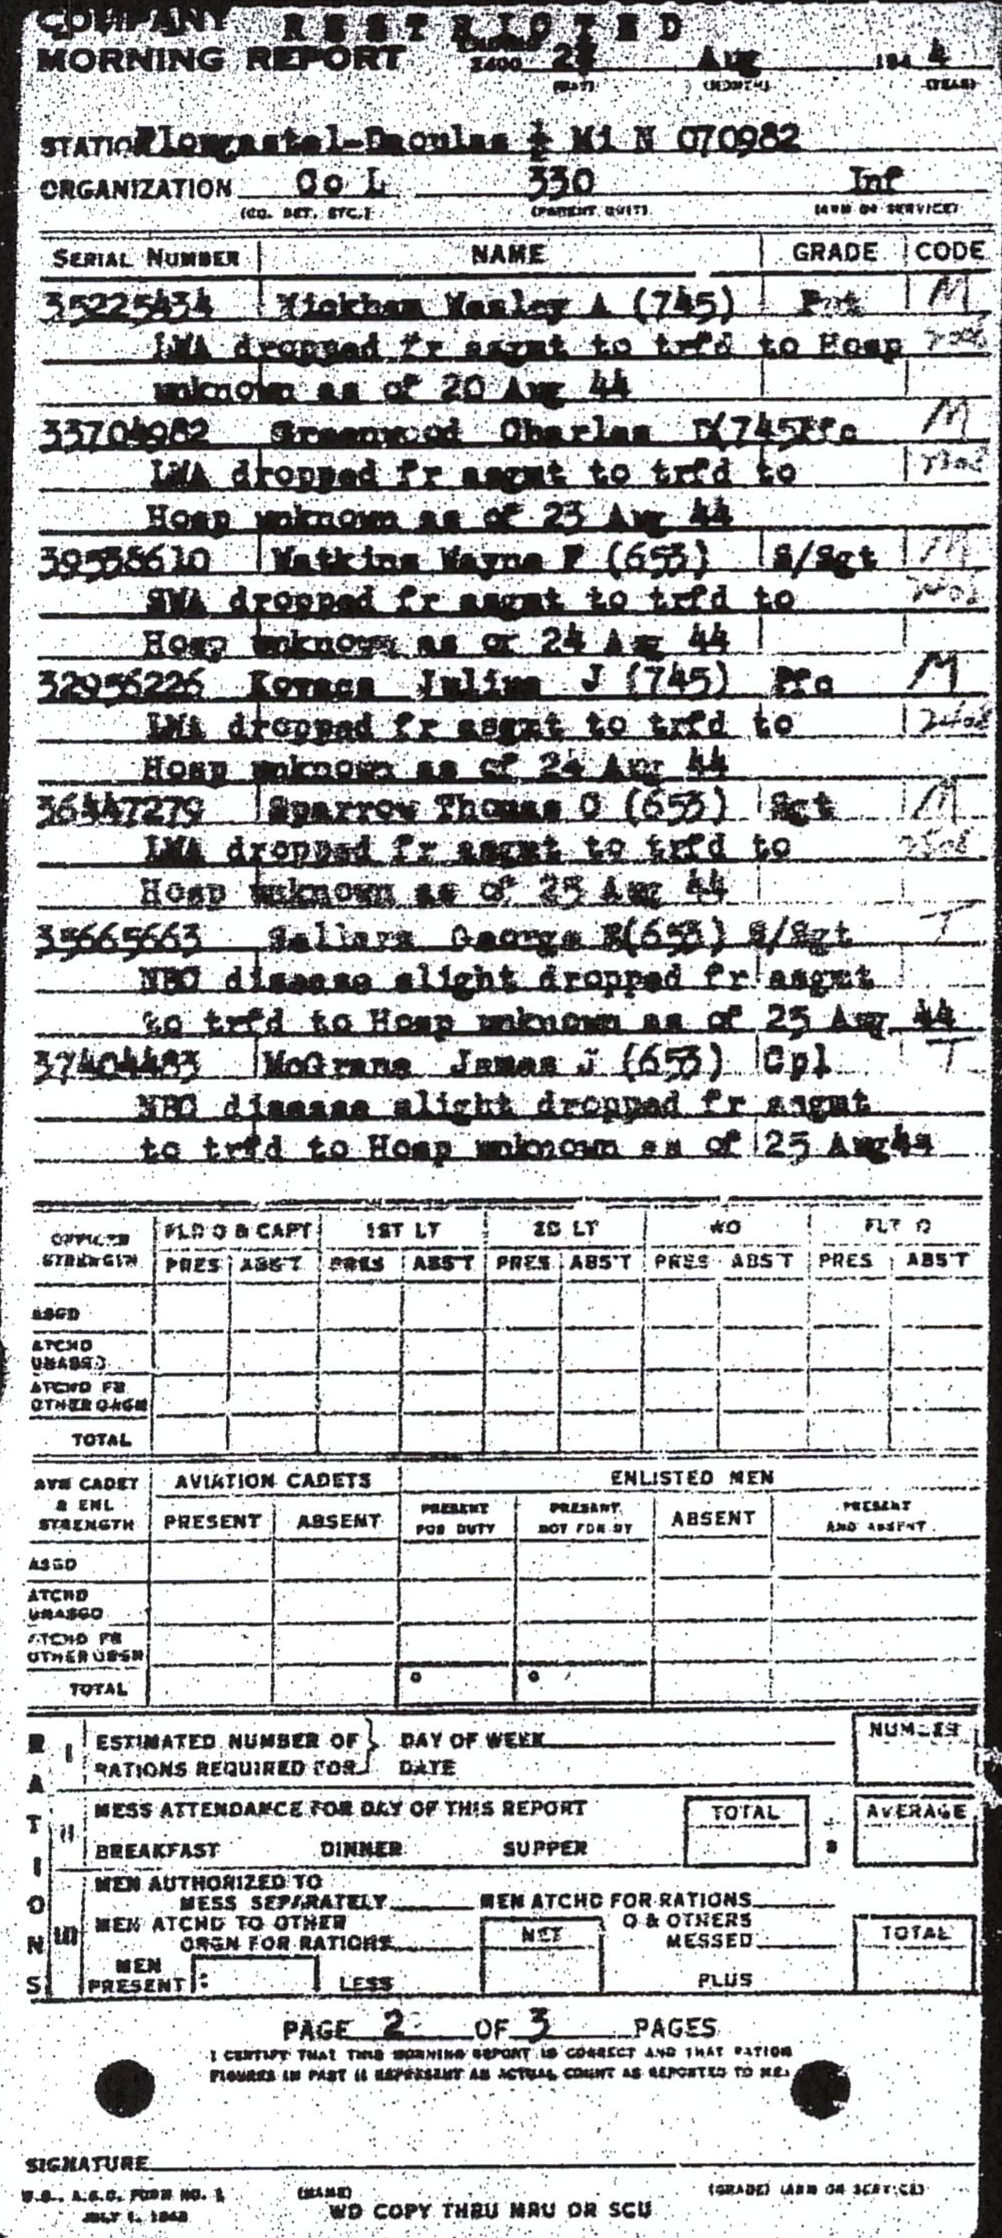 COMPANY RESTRICTED
MORNING REPORT ENDING 2400 Aug 194 4
(DAY) (MONTH) (YEAR)
STATION Plougastel-Daoulas ½ Mi N 070982
ORGANIZATION Co L 330 Inf
(CO. DET. ETC.) (PARENT UNIT) (ARM OR SERVICE)
SERIAL NUMBER NAME GRADE CODE
35225434 Wesley A (745) Pvt M
LWA dropped fr asgmt to trfd to Hosp
unknown as of 20 Aug 44
33704982 Greenwood Charles D(745)Pfc M
LWA dropped fr asgmt to trfd to
Hosp unknown as of 23 Aug 44
39538610 Watkins Wayne F (653) S/Sgt M
SWA dropped fr asgmt to trfd to
Hosp unknown as of 24 Aug 44
32956226 Kovacs Julius J (745) Pfc M
LWA dropped fr asgmt to trfd to
Hosp unknown as of 24 Aug 44
36447279 Sparrow Thomas O (653) Sgt M
LWA dropped fr asgmt to trfd to
Hosp unknown as of 25 Aug 44
35665663 Sellars George R(653) S/Sgt T
NBC disease slight dropped fr asgmt
to trfd to Hosp unknown as of 25 Aug 44
37404483 McGrane James J (653) Cpl T
NBC disease slight dropped fr asgmt
to trfd to Hosp unknown as of 25 Aug44
OFFICER STRENGTH FLD O & CAPT 1ST LT 2D LT WO FLT O
PRES ABS'T PRES ABS'T PRES ABS'T PRES ABS'T PRES ABS'T
ASGD
ATCHD UNASGD
ATCHD FR OTHER ORGN
TOTAL
AVN CADET & ENL STRENGTH AVIATION CADETS ENLISTED MEN
PRESENT ABSENT PRESENT FOR DUTY PRESENT NOT FOR DY ABSENT PRESENT AND ABSENT
ASGD
ATCHD UNASGD
ATCHD FR OTHER ORGN
TOTAL
RATIONS
I ESTIMATED NUMBER OF DAY OF WEEK NUMBER
RATIONS REQUIRED FOR DATE
II MESS ATTENDANCE FOR DAY OF THIS REPORT TOTAL AVERAGE
BREAKFAST DINNER SUPPER
III MEN AUTHORIZED TO
MESS SEPARATELY MEN ATCHD FOR RATIONS
MEN ATCHD TO OTHER NET O & OTHERS TOTAL
ORGN FOR RATIONS MESSED
MEN PRESENT : LESS PLUS
PAGE 2 OF 3 PAGES
I CERTIFY THAT THIS MORNING REPORT IS CORRECT AND THAT RATION
FIGURES IN PART II REPRESENT AN ACTUAL COUNT AS REPORTED TO ME.
SIGNATURE
W.D., A.G.O. FORM NO. 1 (NAME) (GRADE) (ARM OR SERVICE)
JULY 1, 1943 WD COPY THRU MRU OR SCU